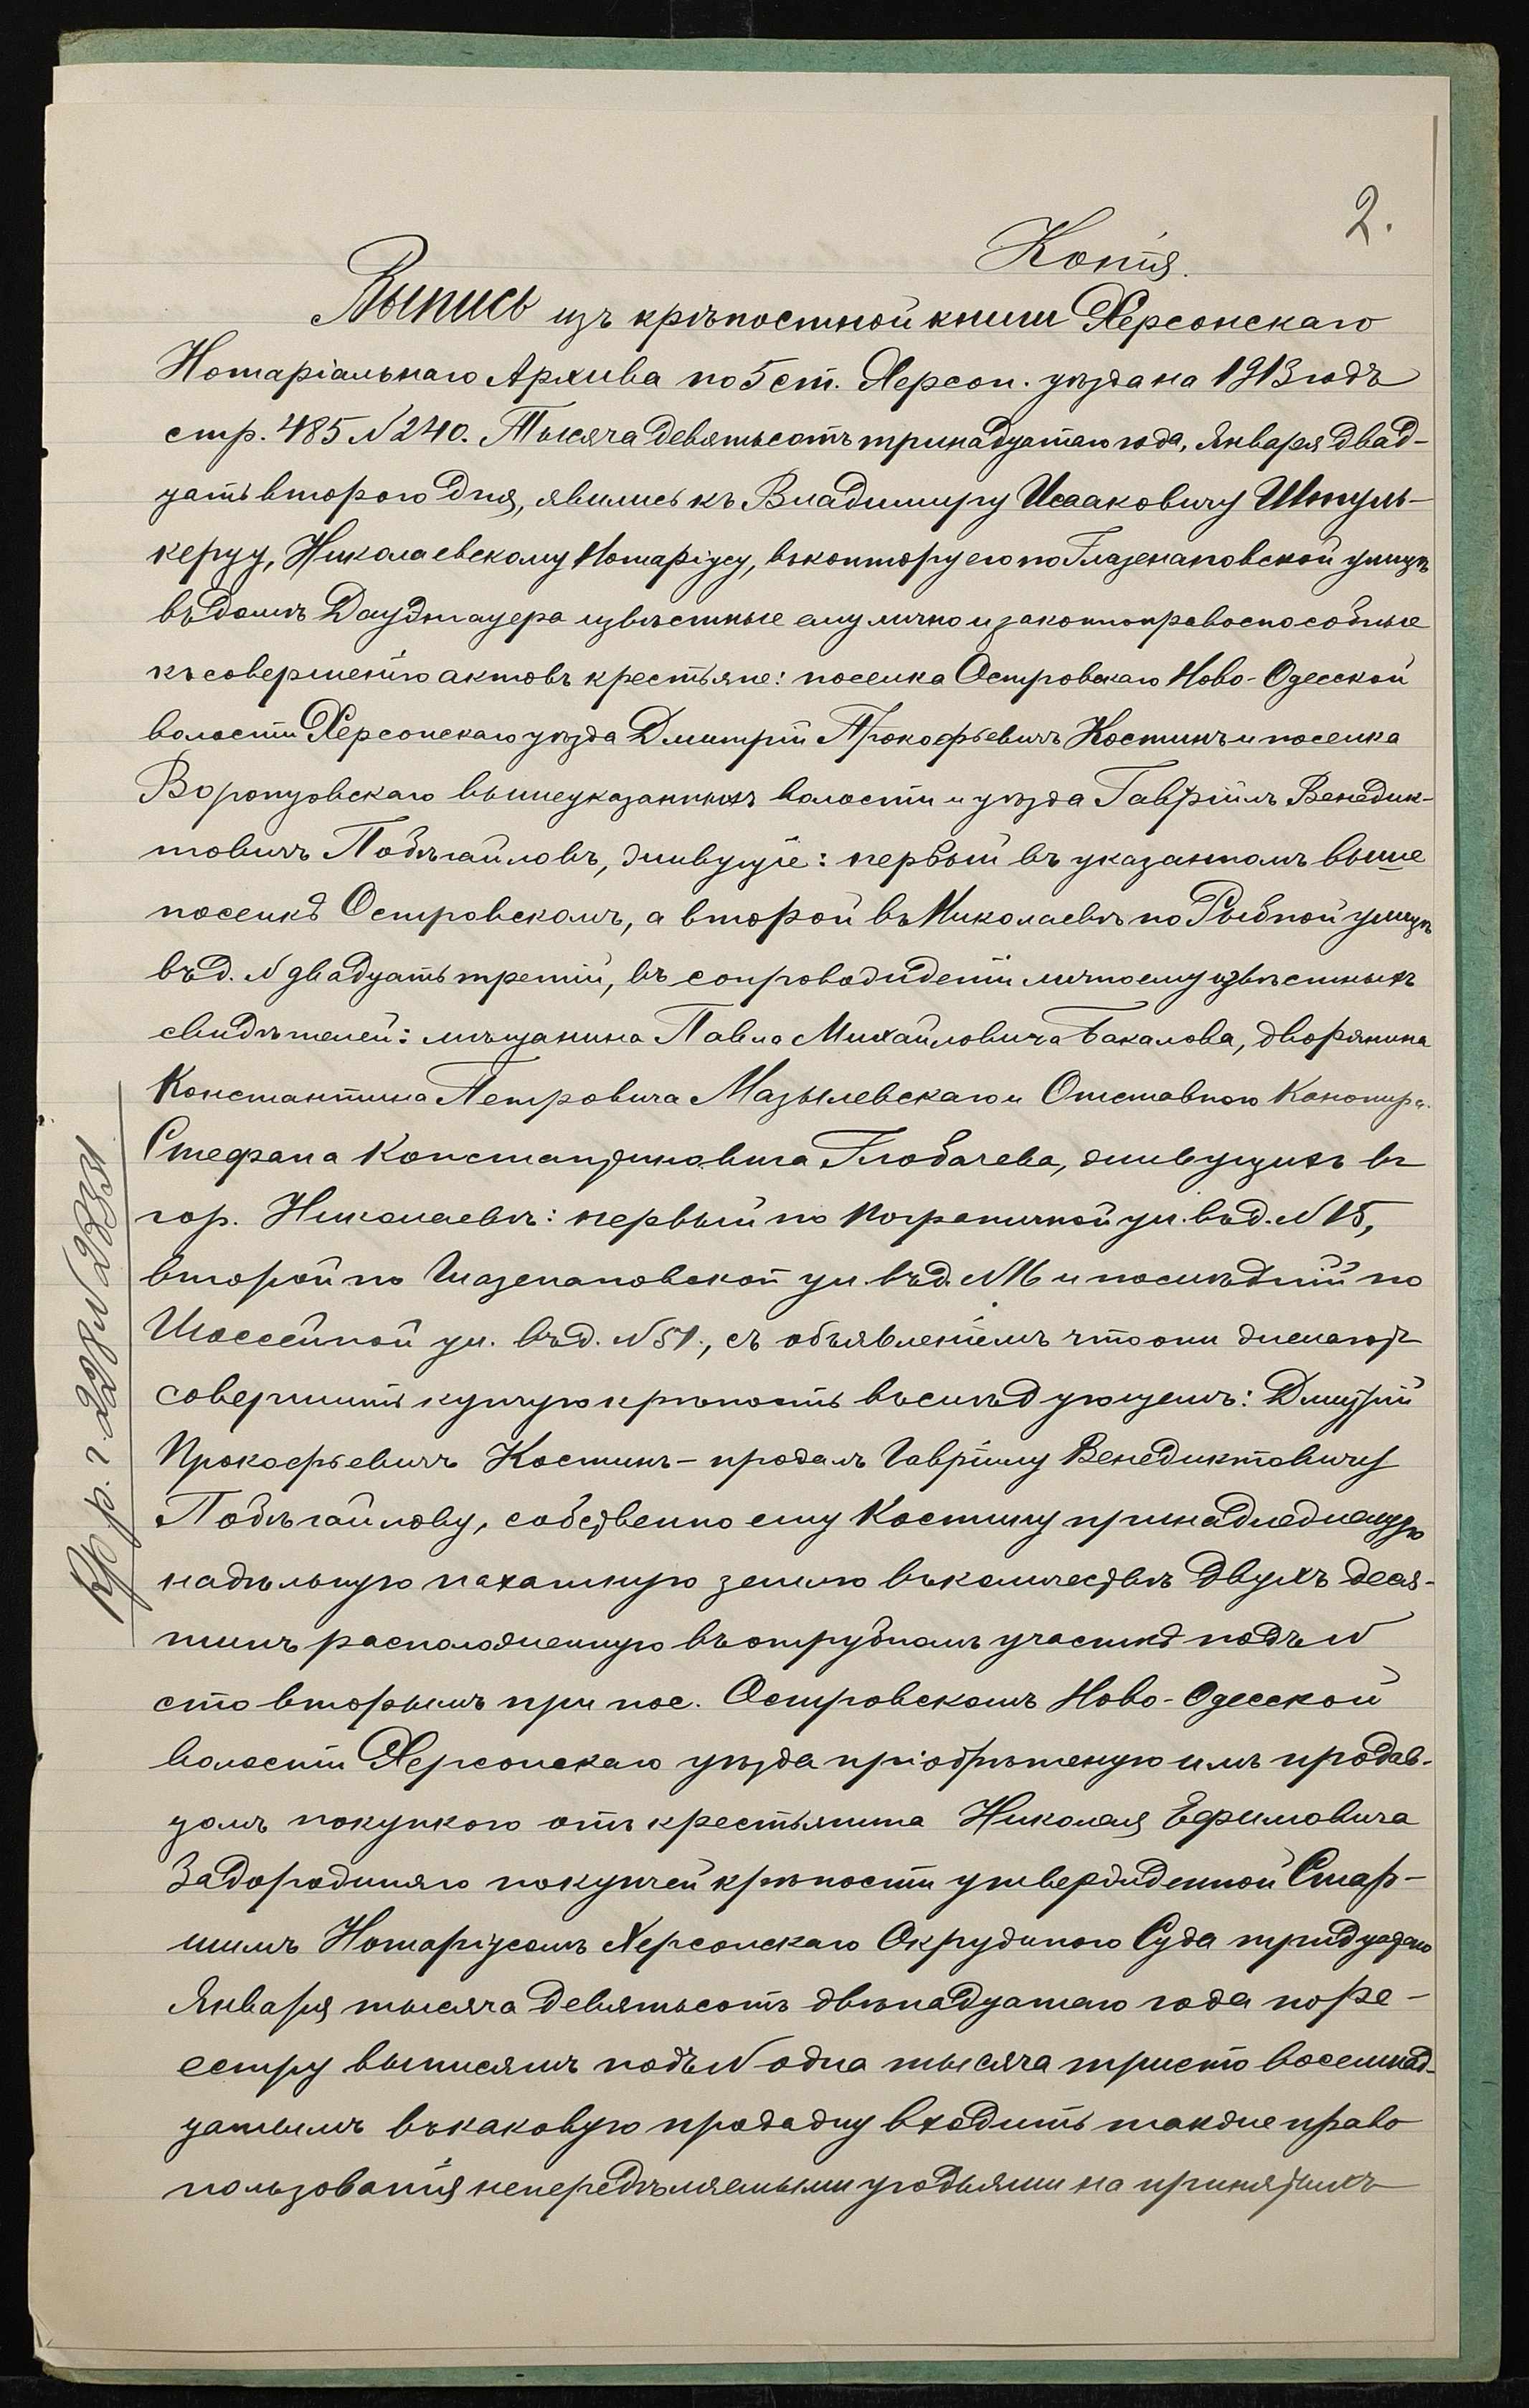 2.
Копія.
Выпись изъ крѣпостной книги Херсонскаго
Нотаріальнаго Архива по 5 ст. Херсон. уѣзда на 1913 годъ
стр. 485 N 240. Тысяча девятьсотъ тринадцатаго года, Января двад-
цать второго дня, явились къ Владимиру Исааковичу Шпуль-
керу, Николаевскому Нотаріусу, въ контору его по Глазенаповской улицѣ
въ домѣ извѣстные ему лично и законноправоспособные
къ совершенію актовъ крестьяне: поселка Островскаго Ново-Одесской
волости Херсонскаго уѣзда Дмитрій Прокофьевичъ Костинъ и поселка
Воронцовскаго вышеуказанныхъ волости и уѣзда Гавріилъ Венедик-
товичъ Побѣгайловъ, живущіе: первый въ указанномъ выше
поселкѣ Островскомъ, а второй въ Николаевѣ по Рыбной улицѣ
въ д. N двадцать третій, въ сопровожденіи лично ему извѣстныхъ
свидѣтелей: мѣщанина Павла Михайловича Бакалова, дворянина
Константина Петровича Мазылевскаго и Отставного Канонира
Стефана Константиновича Глобачева, живущихъ въ
гор. Николаевѣ: первый по Пограничной ул. въ д. N 15,
второй по Глазенаповской ул. въ д. N 16 и послѣдній по
Шоссейной ул. въ д. N 51., съ объявленіемъ что они желаютъ
совершить купчую крѣпость въ слѣдующемъ: Дмитрій
Прокофьевичъ Костинъ - продалъ Гавріилу Венедиктовичу
Побѣгайлову, собственно ему Костину принадлежащую
надѣльную пахатную землю въ количествѣ двухъ деся-
тинъ расположенную въ отрубномъ участкѣ подъ N
сто вторымъ при пос. Островскомъ Ново-Одесской
волости Херсонскаго уѣзда пріобрѣтеную имъ продав-
цомъ покупкою отъ крестьянина Николая Ефимовича
Задорожняго по купчей крѣпости утвержденной Стар-
шимъ Нотаріусомъ Херсонскаго Окружного Суда тридцатаго
Января тысяча девятьсотъ двѣнадцатаго года по ре-
естру выписямъ подъ N одна тысяча триста восемнад-
цатымъ въ каковую продажу входить также право
пользованія непередѣляемыми угодьями на принятыхъ
Кр. р. г. 228 N 28331